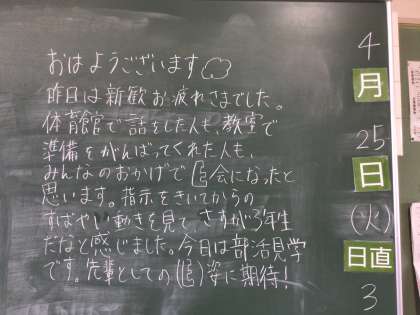 おはようございます
昨日は新歓お疲れさまでした。
体育館で話をした人も、教室で
準備をがんばってくれた人も、
みんなのおかげで 会になったと
思います。指示をきいてからの
すばやい動きを見て、さすが3年生
だなと感じました。今日は部活見学
です。先輩としての 姿に期待!
4
月
25
日
(火)
日直
3